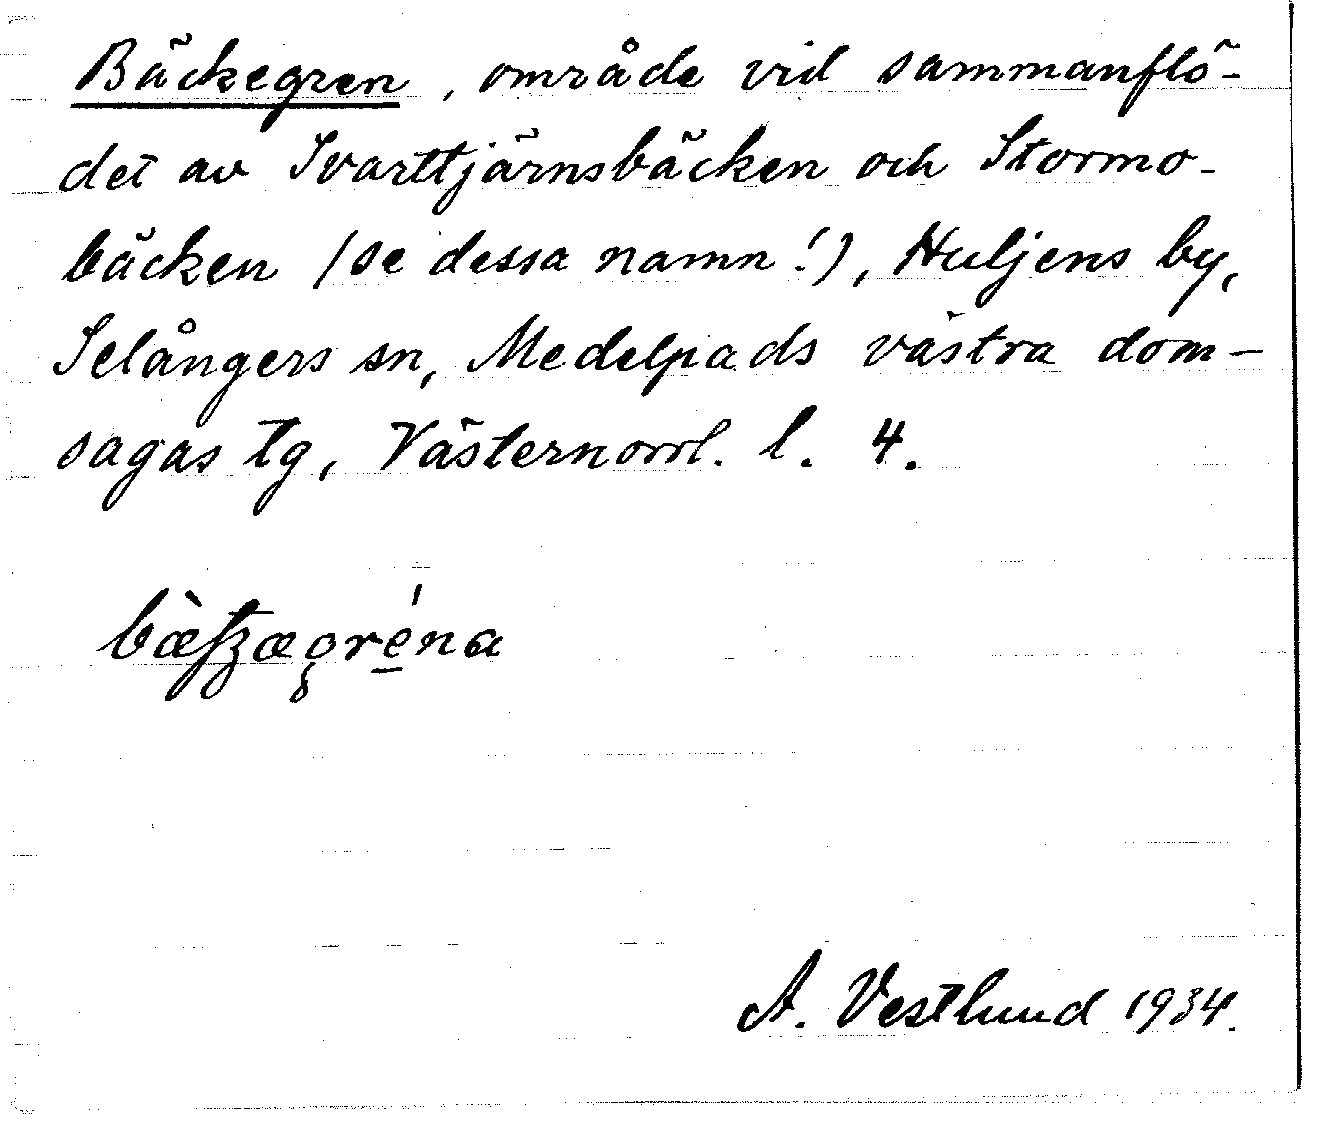 Bäckegren, område vid sammanflö-
det av Svarttjärnsbäcken och Stormo-
bäcken (se dessa namn!), Huljens by,
Selångers sn, Medelpads västra dom-
sagas tg, Västernorrl. l. 4.
A. Vestlund 1934.